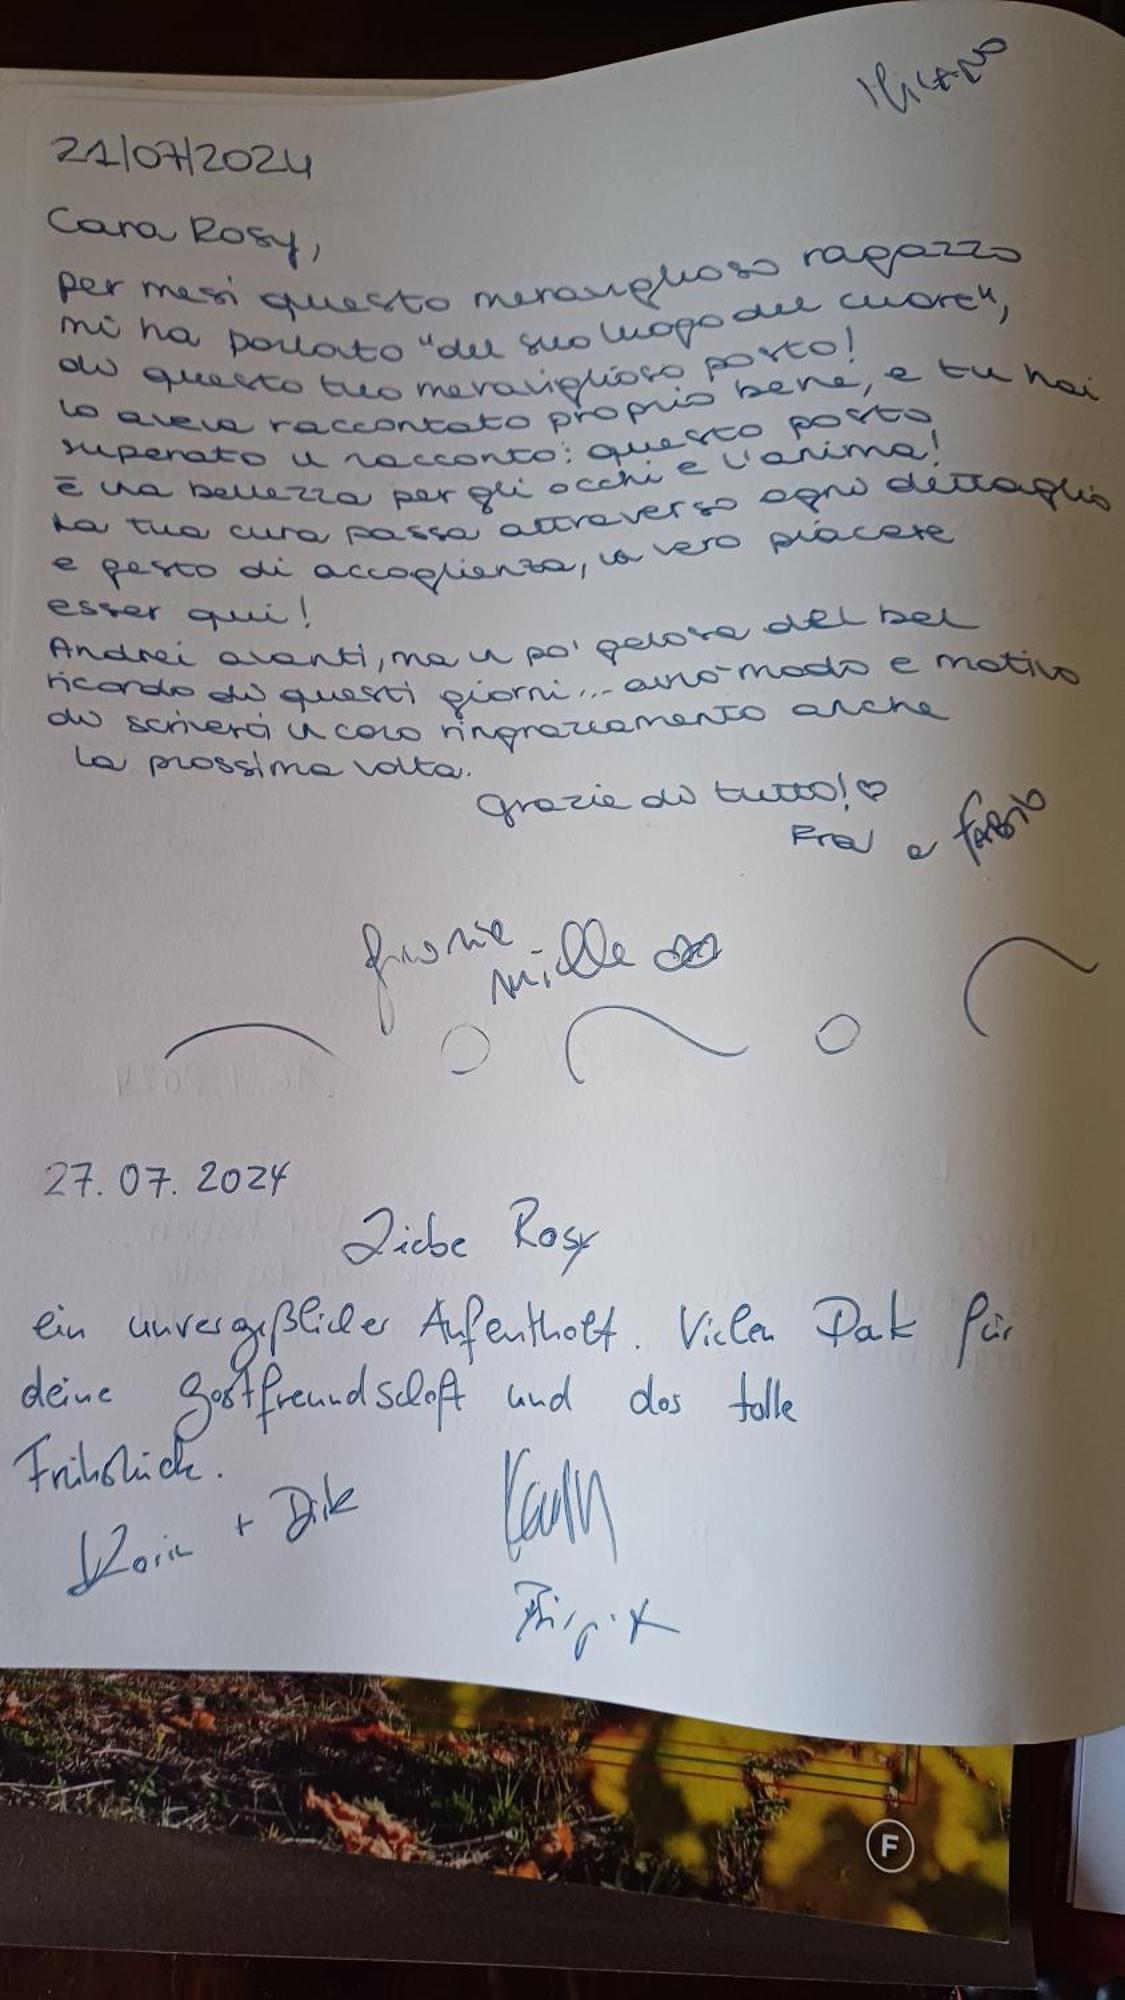 MILANO
21/07/2024
Cara Rosy,
per mesi questo meraviglioso ragazzo
mi ha parlato "del suo luogo del cuore",
di questo tuo meraviglioso posto!
Lo aveva raccontato proprio bene, e tu hai
superato il racconto: questo posto
è una bellezza per gli occhi e l'anima!
La tua cura passa attraverso ogni dettaglio
e gesto di accoglienza, un vero piacere
esser qui!
Andrei avanti, ma un po' gelosa del bel
ricordo di questi giorni... avrò modo e motivo
di scriverci un caro ringraziamento anche
la prossima volta.
Grazie di tutto! ♡
Fra e Fabio
Grazie
mille
27.07.2024
Liebe Rosy
ein unvergeßlicher Aufenthalt. Vielen Dak für
deine Gastfreundschaft und das tolle
Frühstück.
Karin + Dirk
Birgit
F